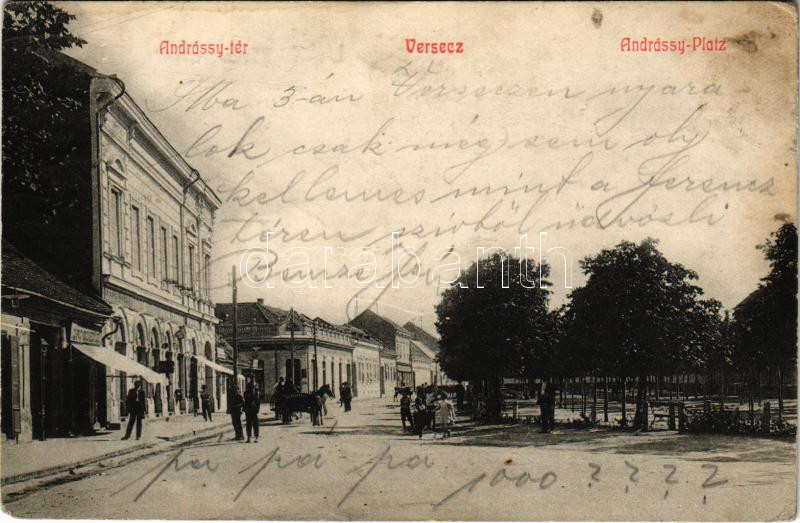 Andrássy-tér Versecz Andrássy-Platz
Ma 3-án Verseczen nyara-
lok csak még sem oly
kellemes mint a Ferencz
téren szivből üdvözli
Bencze
darabanth
pa pa pa 1000 ????